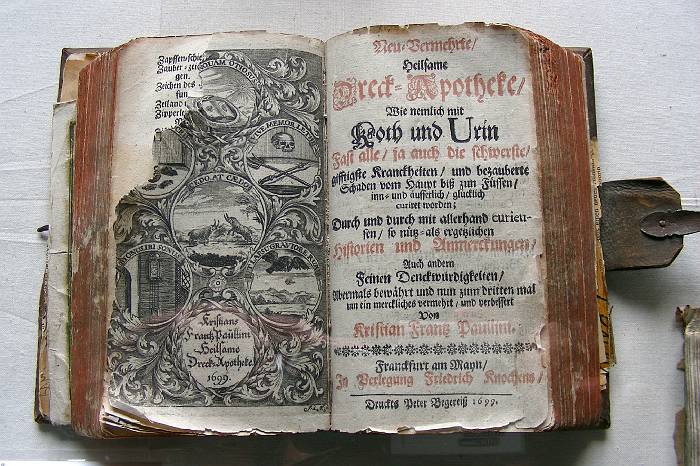 Zapffen-schie
Zauber-zeic
gen.
Zeichen des
fun
Zeiland
Zipperle
QUAM OTIOSU
VIVE MEMOR LETHI
Kristians
Frantz Paullini
Heilsame
Dreck-Apotheke
1699.
Neu-Vermehrte/
Heilsame
Dreck-Apotheke/
Wie nemlich mit
Koth und Urin
Fast alle/ ja auch die schwerste/
gifftigste Kranckheiten/ und bezauberte
Schaden vom Haupt biß zun Füssen/
inn- und äusserlich/ glücklich
curiret worden;
Durch und durch mit allerhand curieu-
sen/ so nütz- als ergetzlichen
Historien und Anmerckungen/
Auch andern
Feinen Denckwürdigkeiten/
Abermals bewährt und nun zum dritten mal
um ein merckliches vermehrt/ und verbessert
Von
Kristian Frantz Paullini.
Franckfurt am Mayn/
In Verlegung Friedrich Knochens/
Druckts Peter Begereiß 1699.